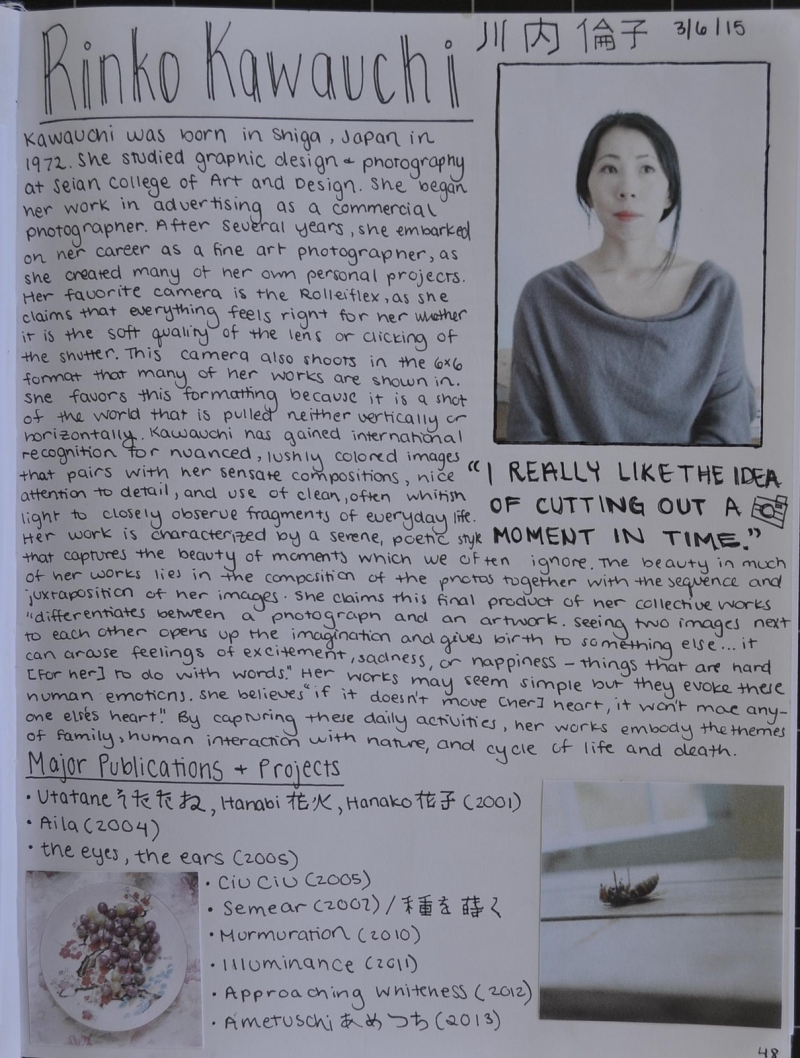 Rinko Kawauchi 川内倫子 3/6/15
Kawauchi was born in Shiga, Japan in
1972. She studied graphic design + photography
at Seian College of Art and Design. She began
her work in advertising as a commercial
photographer. After several years, she embarked
on her career as a fine art photographer, as
she created many of her own personal projects.
Her favorite camera is the Rolleiflex, as she
claims that everything feels right for her whether
it is the soft quality of the lens or clicking of
the shutter. This camera also shoots in the 6x6
format that many of her works are shown in.
She favors this formatting because it is a shot
of the world that is pulled neither vertically or
horizontally. Kawauchi has gained international
recognition for nuanced, lushly colored images
that pairs with her sensate compositions, nice
attention to detail, and use of clean, often whitish
light to closely observe fragments of everyday life.
Her work is characterized by a serene, poetic style
"I REALLY LIKE THE IDEA
OF CUTTING OUT A
MOMENT IN TIME."
that captures the beauty of moments which we often ignore. The beauty in much
of her works lies in the composition of the photos together with the sequence and
juxtaposition of her images. She claims this final product of her collective works
"differentiates between a photograph and an artwork. Seeing two images next
to each other opens up the imagination and gives birth to something else... it
can arouse feelings of excitement, sadness, or happiness – things that are hard
[for her] to do with words." Her works may seem simple but they evoke these
human emotions. She believes "if it doesn't move [her] heart, it won't move any-
one else's heart." By capturing these daily activities, her works embody the themes
of family, human interaction with nature, and cycle of life and death.
Major Publications + Projects
• Utatane うたたね, Hanabi 花火, Hanako 花子 (2001)
• Aila (2004)
• the eyes, the ears (2005)
• Cui Cui (2005)
• Semear (2007) / 種を蒔く
• Murmuration (2010)
• Illuminance (2011)
• Approaching Whiteness (2012)
• Ametsuchi あめつち (2013)
48